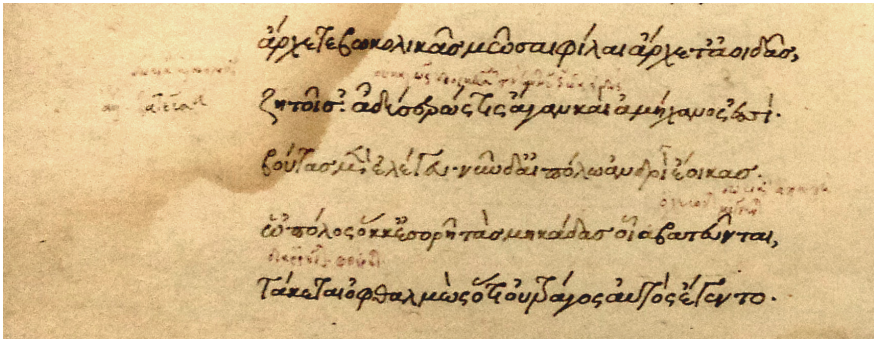 ἄρχετε βωκολικᾶσ μῶσαι φίλαι ἄρχετ' ἀοιδᾶσ,
ζητοῖσ'. ἆ δύσερώς τις ἄγαν καὶ ἀμήχανος ἐσσί.
βούτασ μὲν ἐλέγευ. νῦν δ' αἰπόλω ἀνδρὶ ἔοικασ.
ᾡπόλος ὅκκ' ἐσορῇ τὰσ μηκάδασ οἷα βατεῦνται,
τάκεται ὀφθαλμὼς ὅτι οὐ τράγος αὐτὸς ἔγεντο.